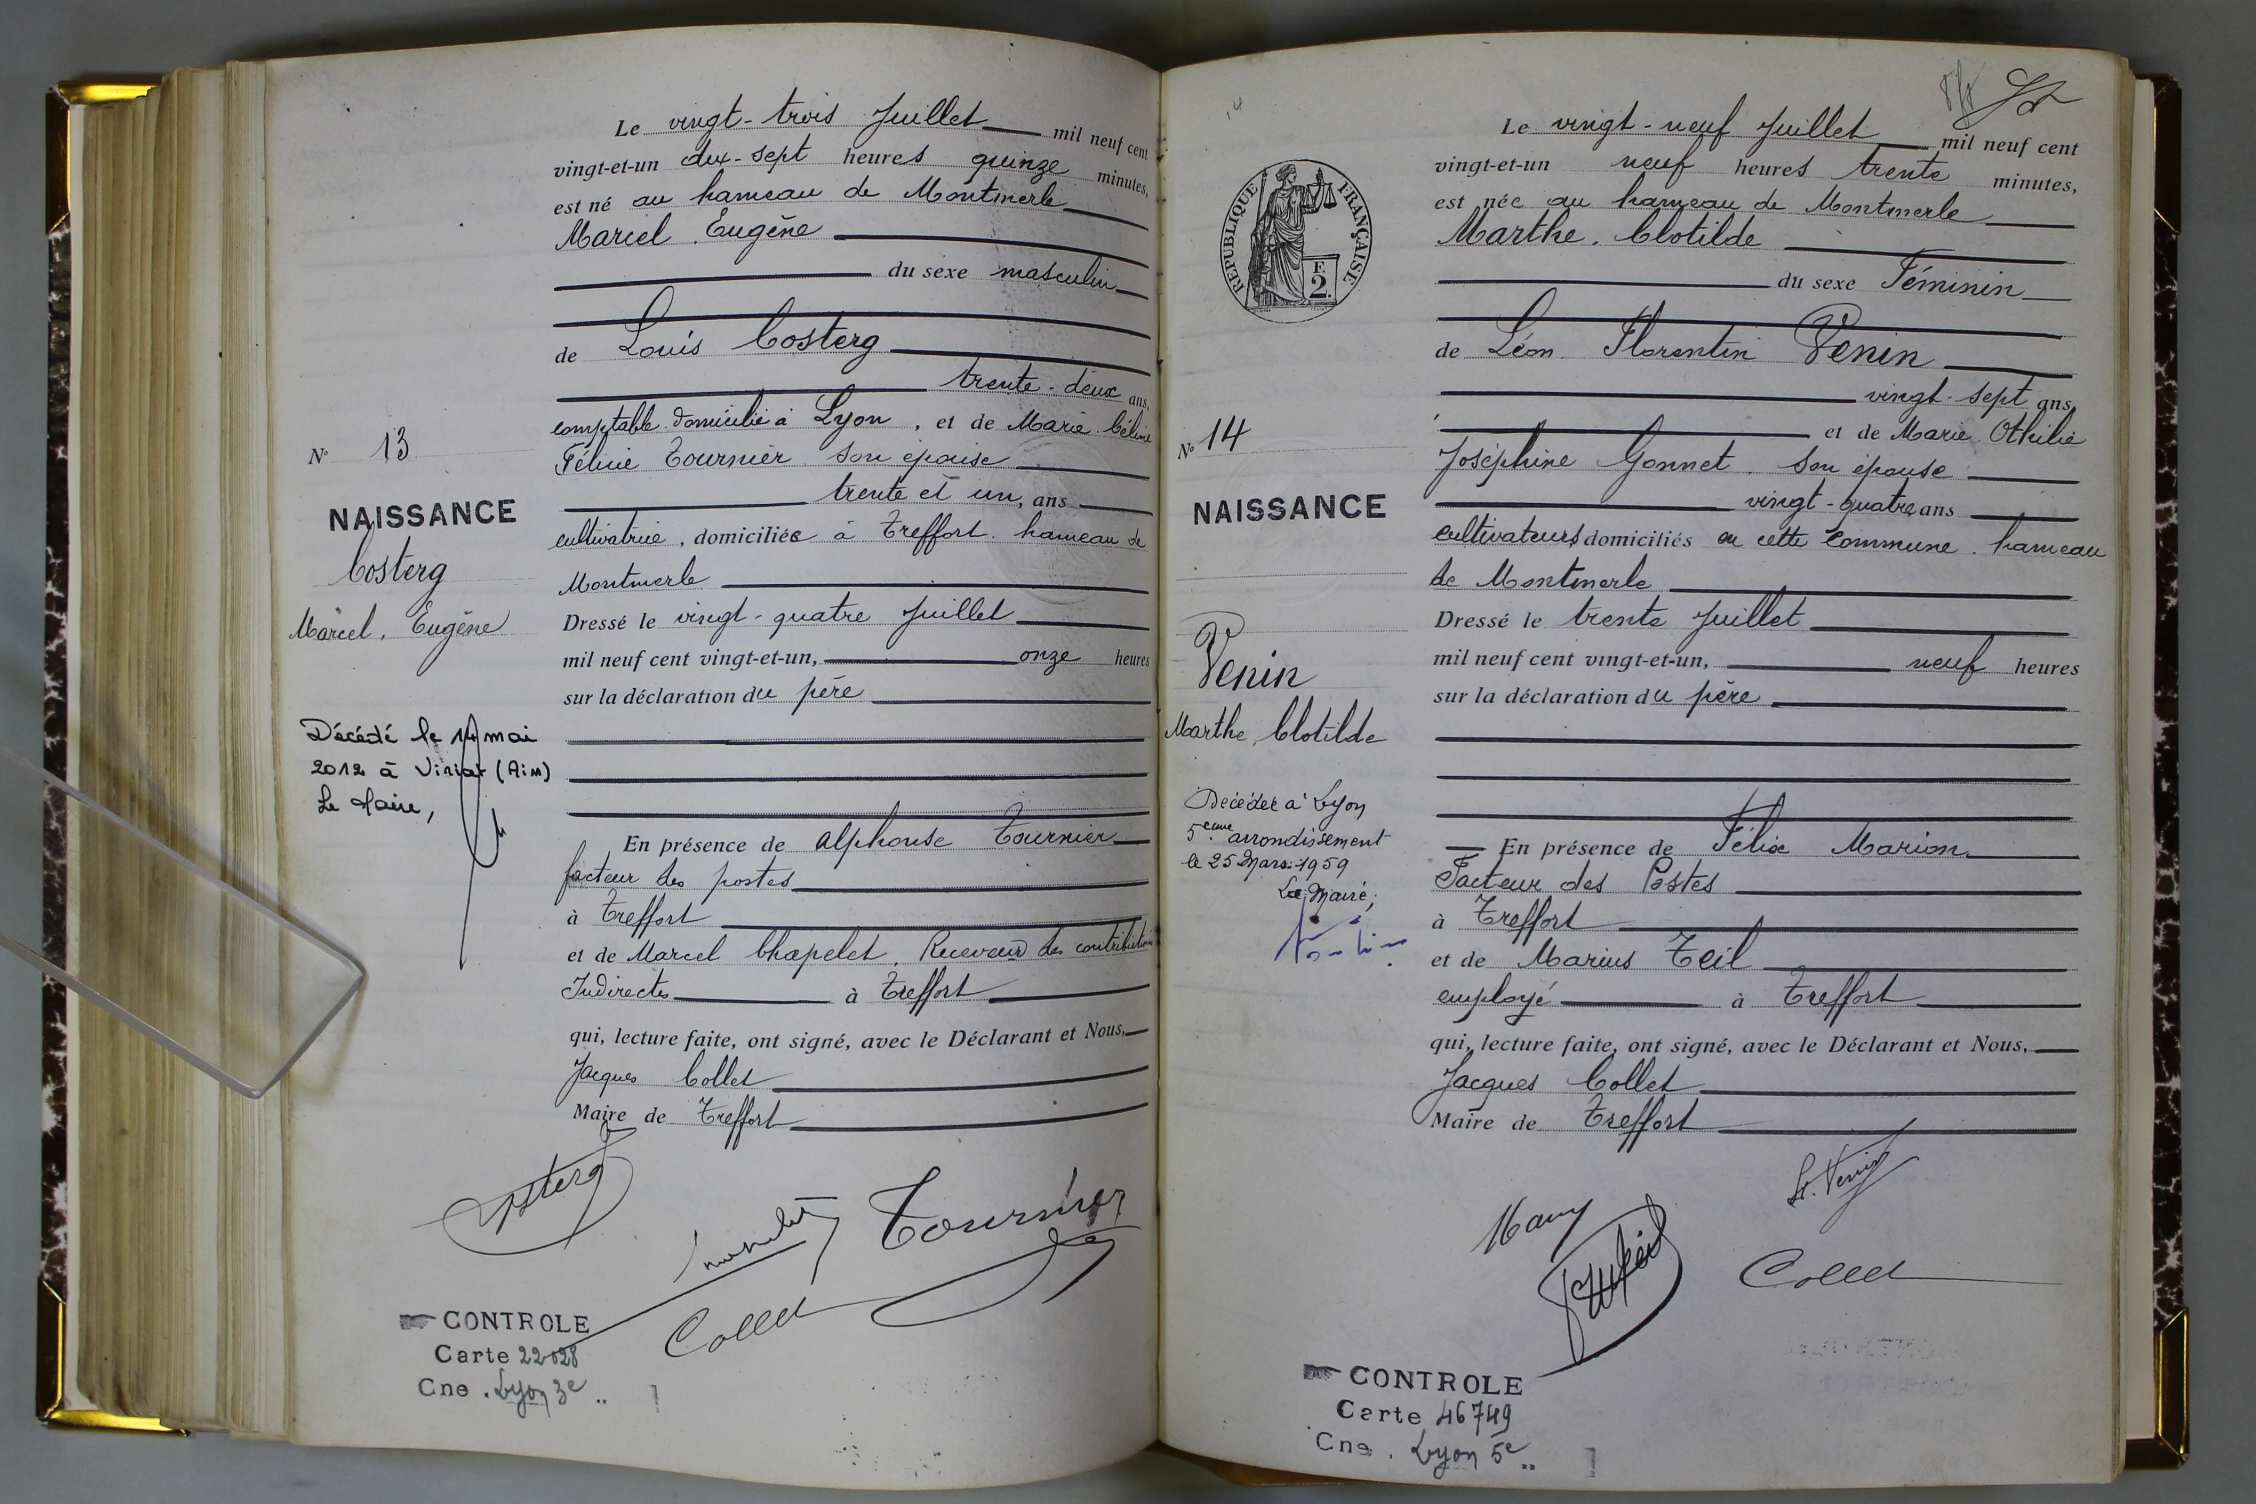 Le vingt-trois Juillet mil neuf cent
vingt-et-un dix-sept heures quinze minutes,
est né au hameau de Montmerle
Marcel, Eugène
du sexe masculin
de Louis Costerg
trente-deux ans,
comptable domicilié à Lyon, et de Marie Céline
Félicie Tournier son épouse
trente et un, ans
cultivatrice, domiciliée à Treffort, hameau de
Montmerle
Dressé le vingt-quatre Juillet
mil neuf cent vingt-et-un, onze heures
sur la déclaration du père
En présence de Alphonse Tournier
facteur des postes
à Treffort
et de Marcel Chapelet, Receveur des contributions
Indirectes à Treffort
qui, lecture faite, ont signé, avec le Déclarant et Nous,
Jacques Collet
Maire de Treffort
N° 13
NAISSANCE
Costerg
Marcel, Eugène
Décédé le 14 mai
2012 à Viriat (Ain)
Le Maire,
Costerg
Tournier
Collet
CONTROLE
Carte 22028
Cne. Lyon 3e
Le vingt-neuf Juillet mil neuf cent
vingt-et-un neuf heures trente minutes,
est née au hameau de Montmerle
Marthe, Clotilde
du sexe Féminin
de Léon Florentin Venin
vingt-sept ans,
et de Marie Othilie
Joséphine Gonnet, son épouse
vingt-quatre, ans
cultivateurs, domiciliés en cette commune, hameau
de Montmerle
Dressé le trente Juillet
mil neuf cent vingt-et-un, neuf heures
sur la déclaration du père
En présence de Félix Marion
Facteur des Postes
à Treffort
et de Marius Teil
employé à Treffort
qui, lecture faite, ont signé, avec le Déclarant et Nous,
Jacques Collet
Maire de Treffort
14
REPUBLIQUE FRANÇAISE
F.
2.
N° 14
NAISSANCE
Venin
Marthe, Clotilde
Décédée à Lyon
5ème arrondissement
le 25 Mars 1959
Le Maire,
Venin
Collet
CONTROLE
Carte 46749
Cne. Lyon 5e